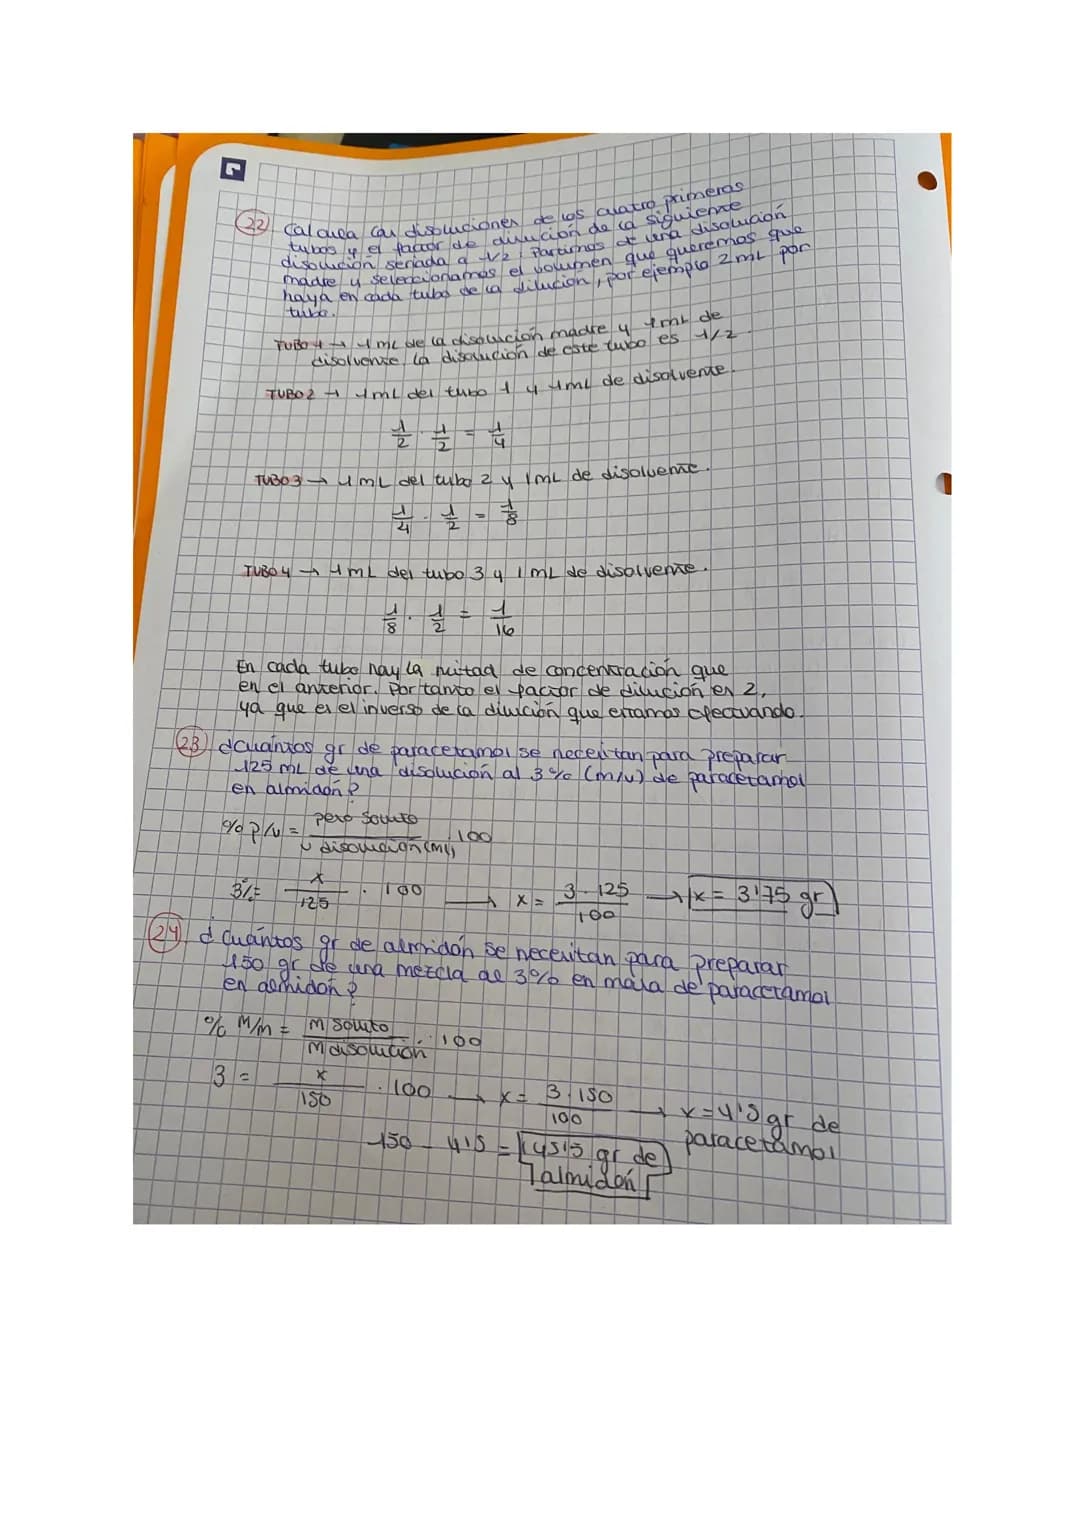 22 Calcula las disoluciones de los cuatro primeros
tubos y el factor de dilución de la siguiente
disolución seriada a 1/2. Partimos de una disolución
madre y seleccionamos el volumen que queremos que
haya en cada tubo de la dilución, por ejemplo 2mL por
tubo.
TUBO 1 → 1 mL de la disolución madre y 1mL de
disolvente. La disolución de este tubo es 1/2
TUBO 2 → 1mL del tubo 1 y 1mL de disolvente.
1/2 · 1/2 = 1/4
TUBO 3 → 1 mL del tubo 2 y 1mL de disolvente.
1/4 · 1/2 = 1/8
TUBO 4 → 1mL del tubo 3 y 1mL de disolvente.
1/8 · 1/2 = 1/16
En cada tubo hay la mitad de concentración que
en el anterior. Por tanto el factor de dilución es 2,
ya que es el inverso de la dilución que estamos efectuando.
23 ¿Cuántos gr de paracetamol se necesitan para preparar
125 mL de una disolución al 3% (m/v) de paracetamol
en almidón?
% p/v = peso soluto / v disolución (mL) · 100
3% = x/125 · 100 → x = 3 · 125 / 100 → x = 3'75 gr
24 ¿Cuántos gr de almidón se necesitan para preparar
150 gr de una mezcla al 3% en masa de paracetamol
en almidón?
% m/m = m soluto / m disolución · 100
3 = x/150 · 100 → x = 3 · 150 / 100 → x = 4'5 gr de
paracetamol
150 - 4'5 = 145'5 gr de
almidón